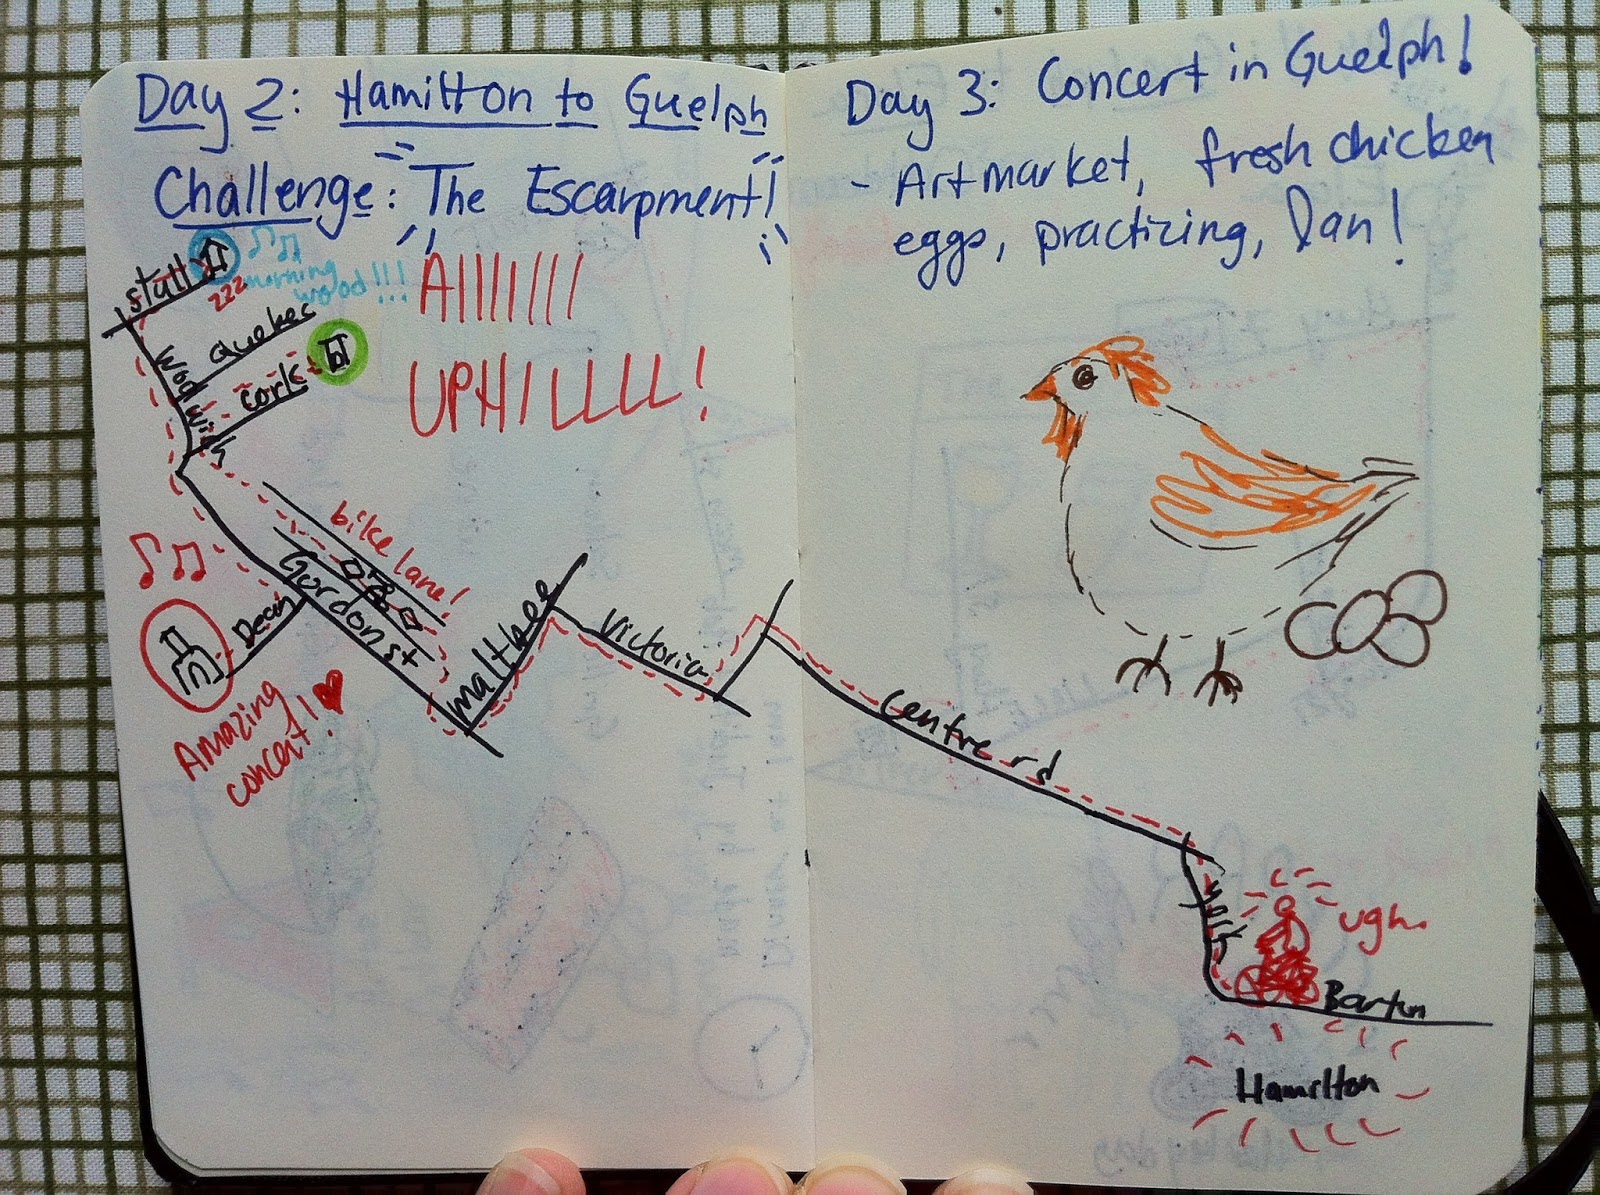 Day 2: Hamilton to Guelph
Challenge: The Escarpment!
Alllllll
UPHILLLLL!
Stull
zzz
morning
wood!!!
Quebec
Cork
Woolwich
bike lane!
Gordon st
Dean
Amazing
concert!
maltbee
Victoria
Day 3: Concert in Guelph!
- Art market, fresh chicken
eggs, practizing, Dan!
Centre rd
York
ugh.
Barton
Hamilton